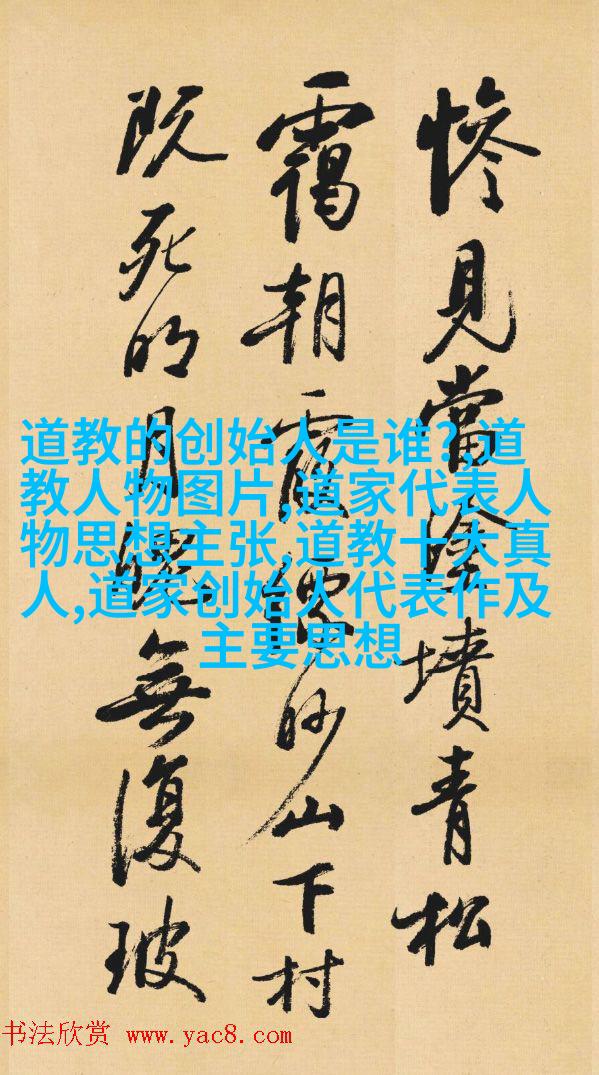 慘見當塗墳青松
靄朝霞縹眇山下村
既死明月魄無復玻
道教的创始人是谁?,道
教人物图片,道家代表人
物思想主张,道教十大真
人,道家创始人代表作及
主要思想
书法欣赏 www.yac8.com